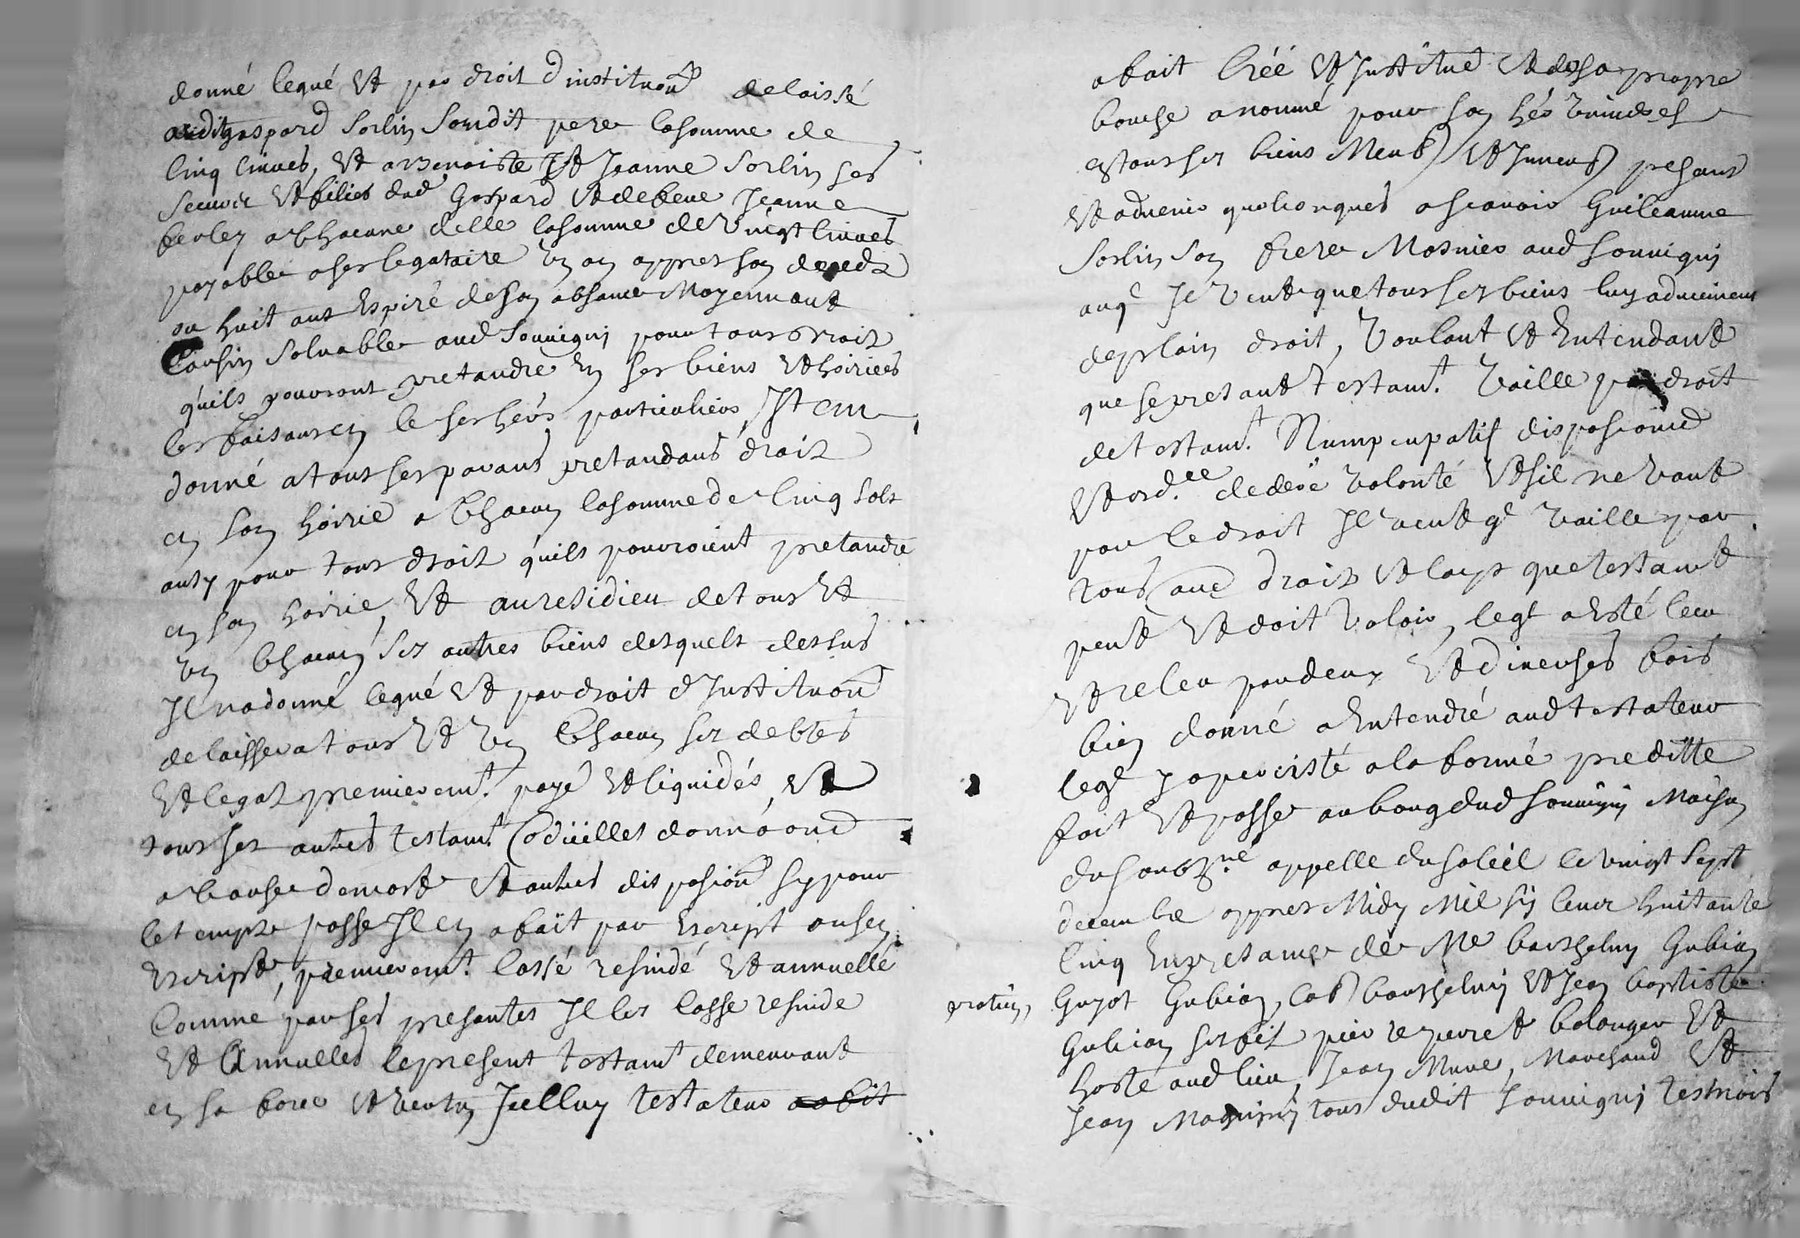 donné legué et par droit d'instituon delaissé
audit gaspard Sorlin Soudit pere la somme de
Cinq livres, et a et Jeanne Sorlin ses
et filies dud Gaspard et de feue Jeanne
a Chacune delle la somme de Vingt livres
payable a ses legataire Un an appres son deceds
ou huit ans Expiré de son absance Moyennant
Caution Solvable aud Souvigny pour tous droits
quils pouvront pretandre En ses biens et hoiries
les faisant en ce ses hers particuliers, Item
donné a tous ses parans pretandans droit
en son hoirie a Chacun la somme de Cinq sols
ausy pour tous droit quils pouvroient pretandre
en son hoirie, et au residieu de tous et
Un Chacun ses autres biens desquels dessus
Il na donné legué et par droit d'Instituon
delaisse a tous et Un Chacun ses debtes
et legaz premierem.t payé et liquidés, et
tous ses autres testam.t Codicilles donnaons
a Cause de mort et autres disposion sy pour
le temps passe Il en a fait par Escript ou sen
Escript, premierem.t Cassé resindé et annuelle
Comme par ses presantes Il les Casse resinde
et Annulles le present testam.t demeurant
en sa force et vertu Icelluy testateur
a fait Créé et Institué et de sa propre
bouche a nommé pour son hér Universel
en tous ses biens Meub et Immeub presant
et advenir quelconques a scavoir Guilleaume
Sorlin son frere Mosnier aud Souvigny
auql Il veut que tous ses biens luy advienent
de plain droit, Voulant et Entendant
que se presant testam.t Vaille par droit
de testam.t Numpcupatif disposiond
et ord.ce de dere volonté et sil ne vaut
par Ce droit Il veut q.e Vaille par
tous aud droits et loys que testant
peut et doit Valoir, leql a Esté leu
et releu par deux et diverses fois
bien donné a Entendre aud testateur
leql y a percisté a la forme preditte
fait et passe au bourg dud Souvigny Maison
du soubz.né appelle du soleil le vingt sept
decembre appres Midy Mil six Cens huitante
Cinq En presance de Me barthelmy Gubian
praticien,
Guyot Gubian, barthelmy et Jean baptiste
Gubian ses fils pierre perret bolanger et
hoste aud lieu, Jean Mure, Marchand et
Jean tous dudit Souvigny tesmois